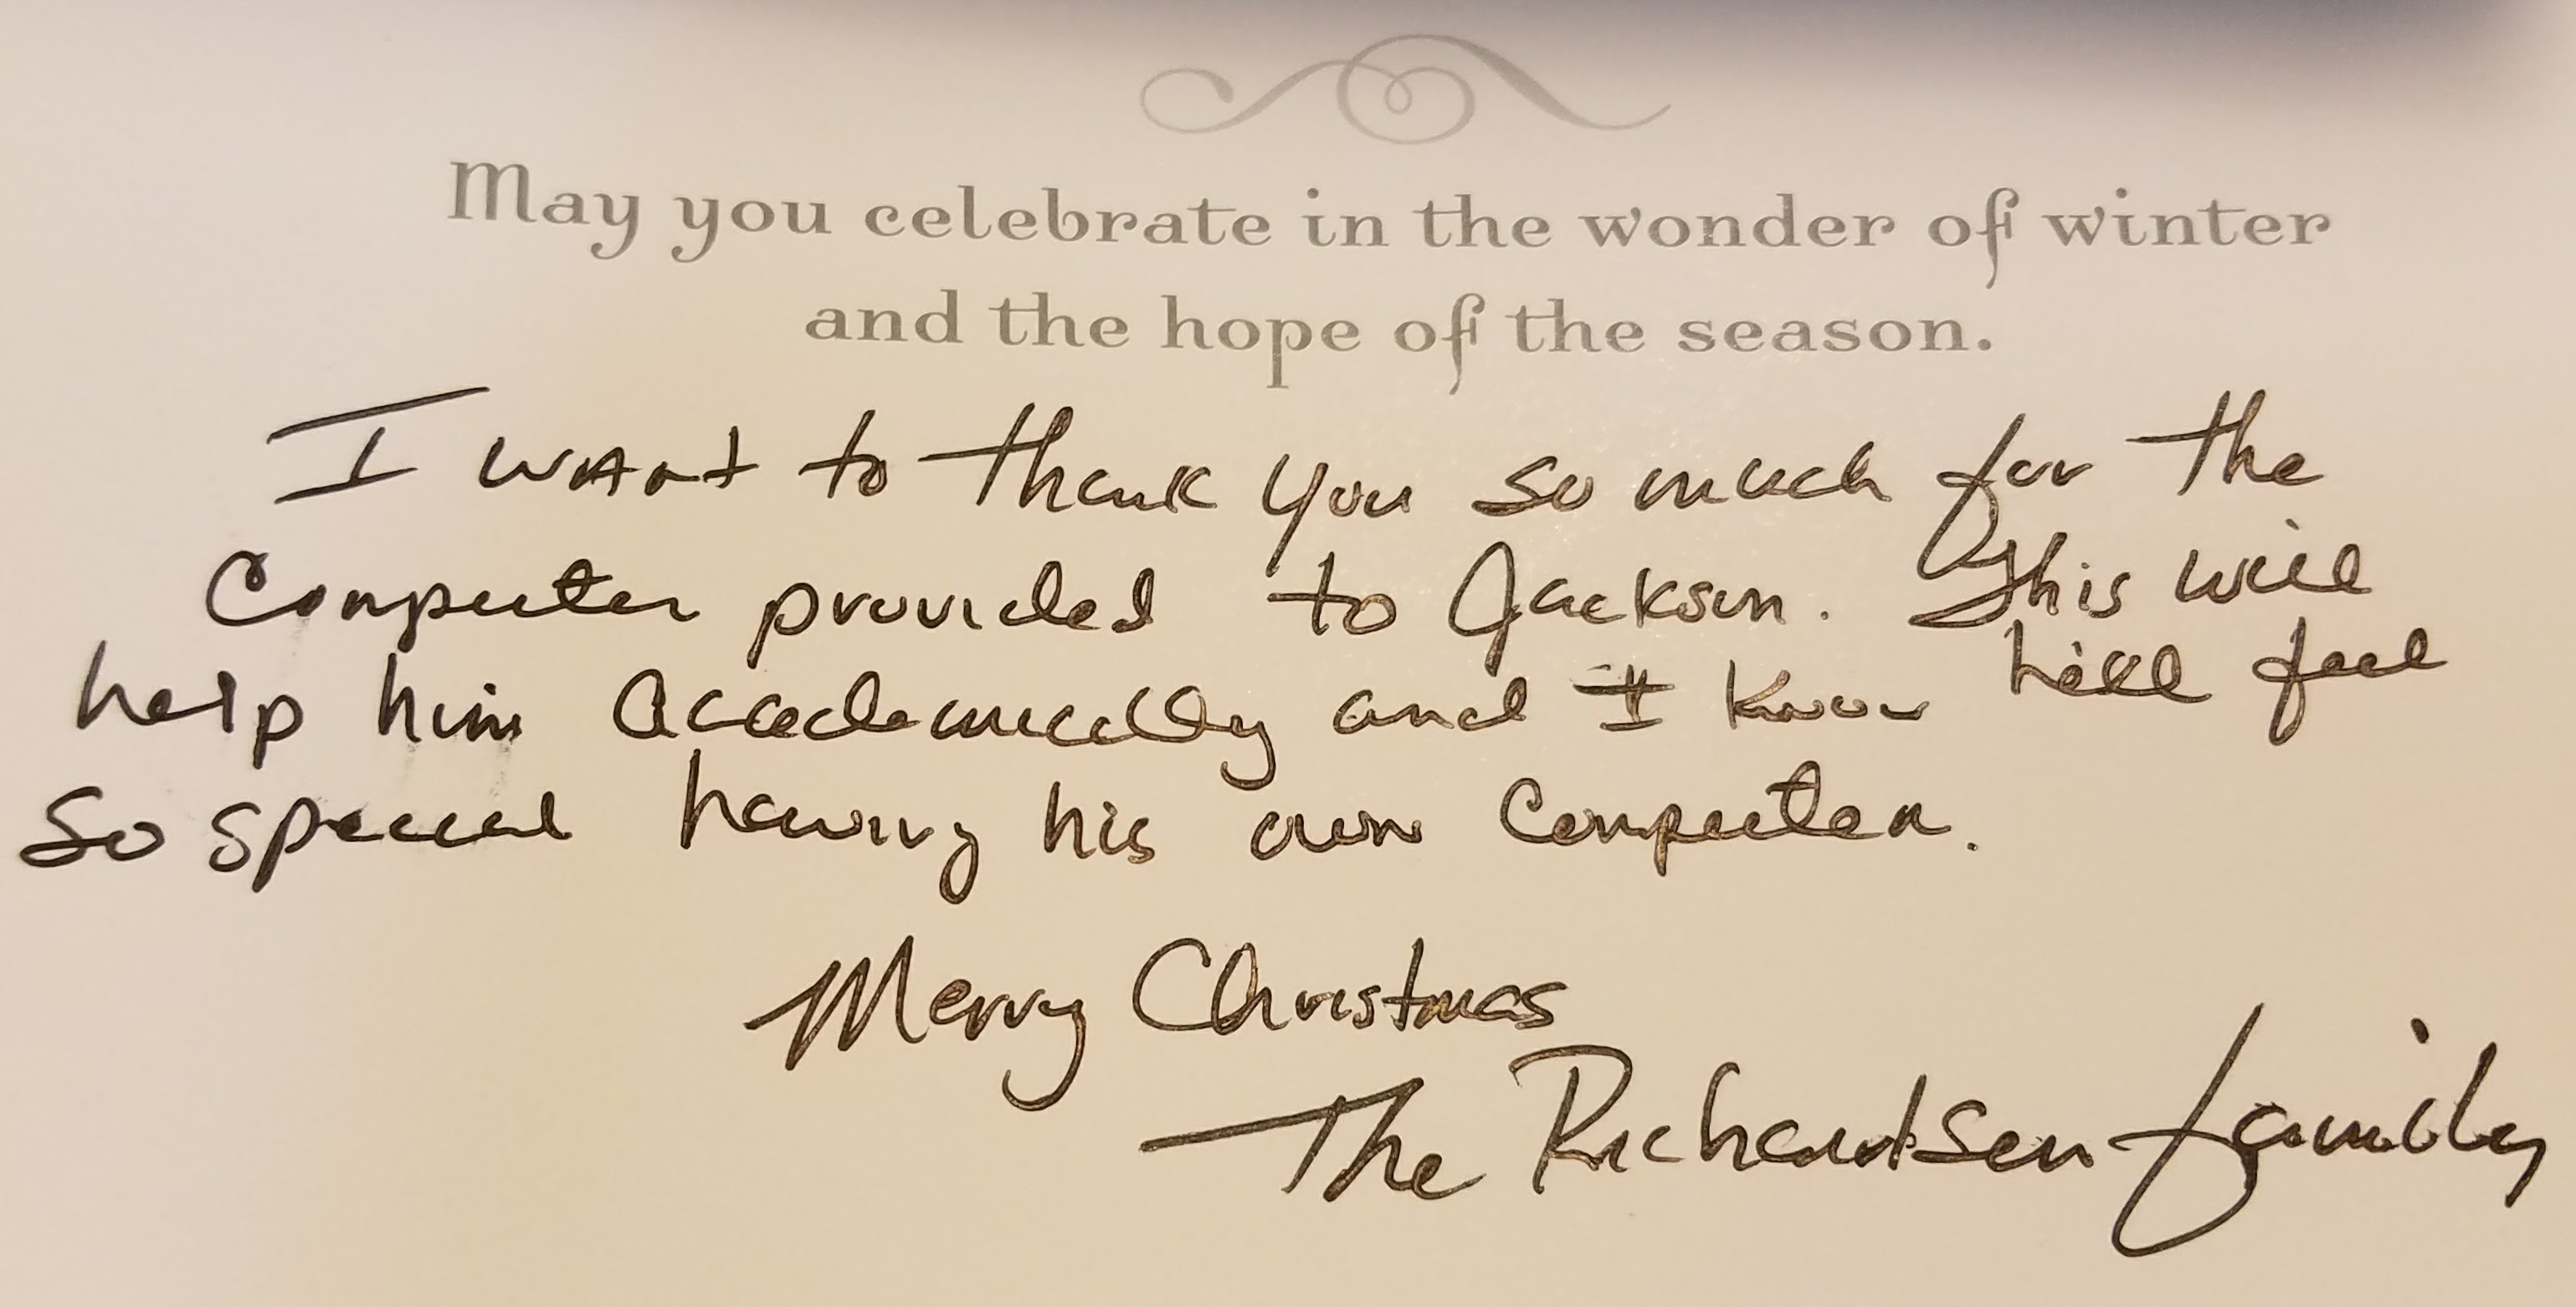 May you celebrate in the wonder of winter
and the hope of the season.
I want to thank you so much for the
Computer provided to Jackson. This will
help him academically and I know he'll feel
so special having his own computer.
Merry Christmas
The Richardson family